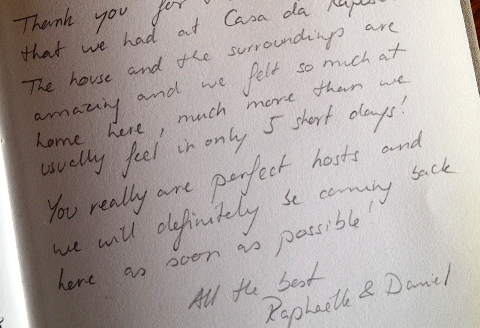 Thank you for
that we had at Casa da Raposa
The house and the surroundings are
amazing and we felt so much at
home here, much more than we
usually feel in only 5 short days!
You really are perfect hosts and
we will definitely be coming back
here as soon as possible!
All the best
Raphaelle & Daniel